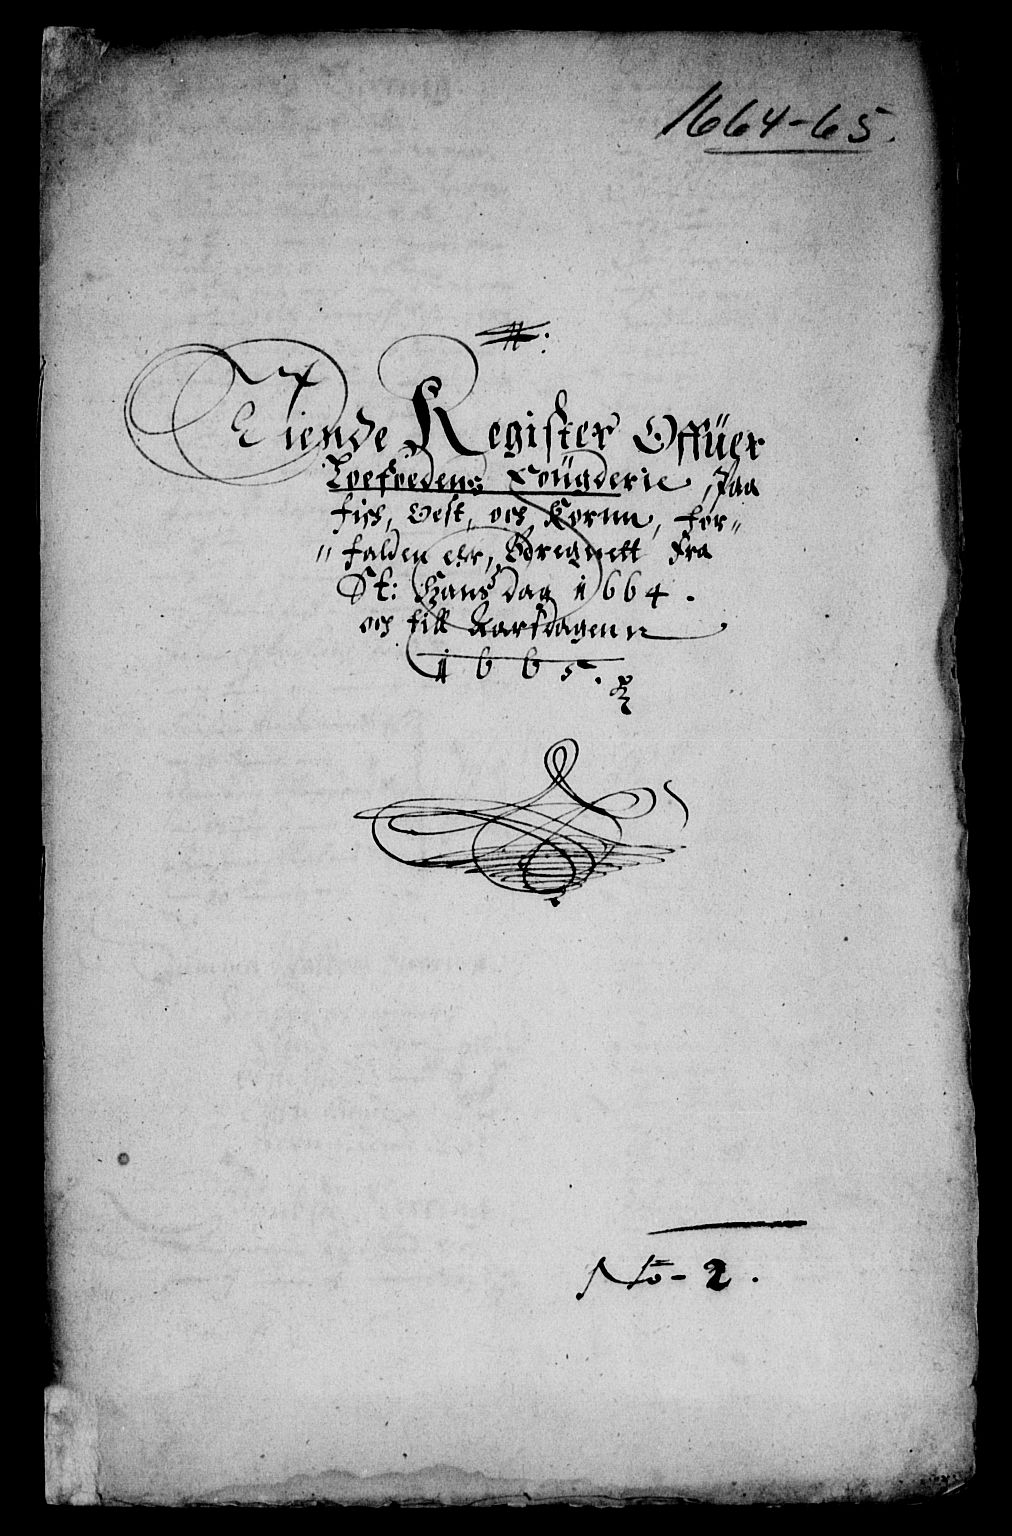 1664-65.
Tiende Register Offüer
Loefoedens Fougderie, Paa
fisk, Oest, och Kornn, for„
„falden ehr, Beregnett Fra
St: Hans Dag 1664.
och till Aarsdagenn
1665.
No- 2.